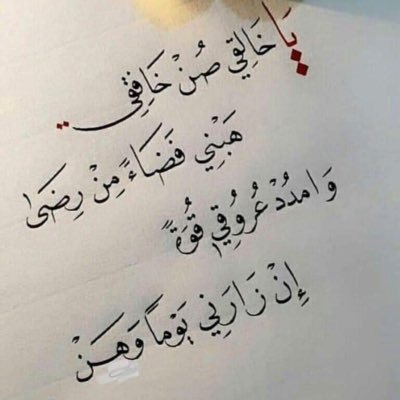 يَا خَالِقِي صُنْ خَافِقِي
هَبْنِي فَضَاءً مِنْ رِضَى
وَامدُدْ عُرُوقِي قُوَّةً
إِنْ زَارَنِي يَوْماً وَهَنْ